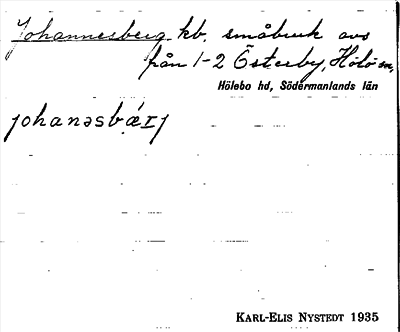 Johannesberg kb. småbruk avs
från 1-2 Österby, Hölö sn,
Hölebo hd, Södermanlands län
johanəsbǽ̣rj
KARL-ELIS NYSTEDT 1935